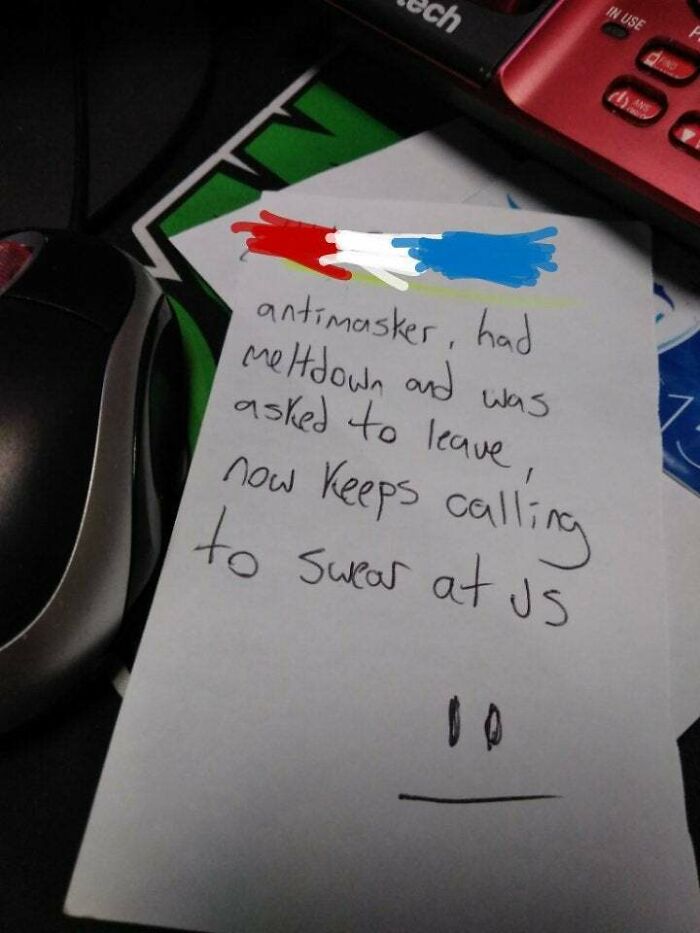 tech
IN USE
antimasker, had
meltdown and was
asked to leave,
now keeps calling
to swear at us